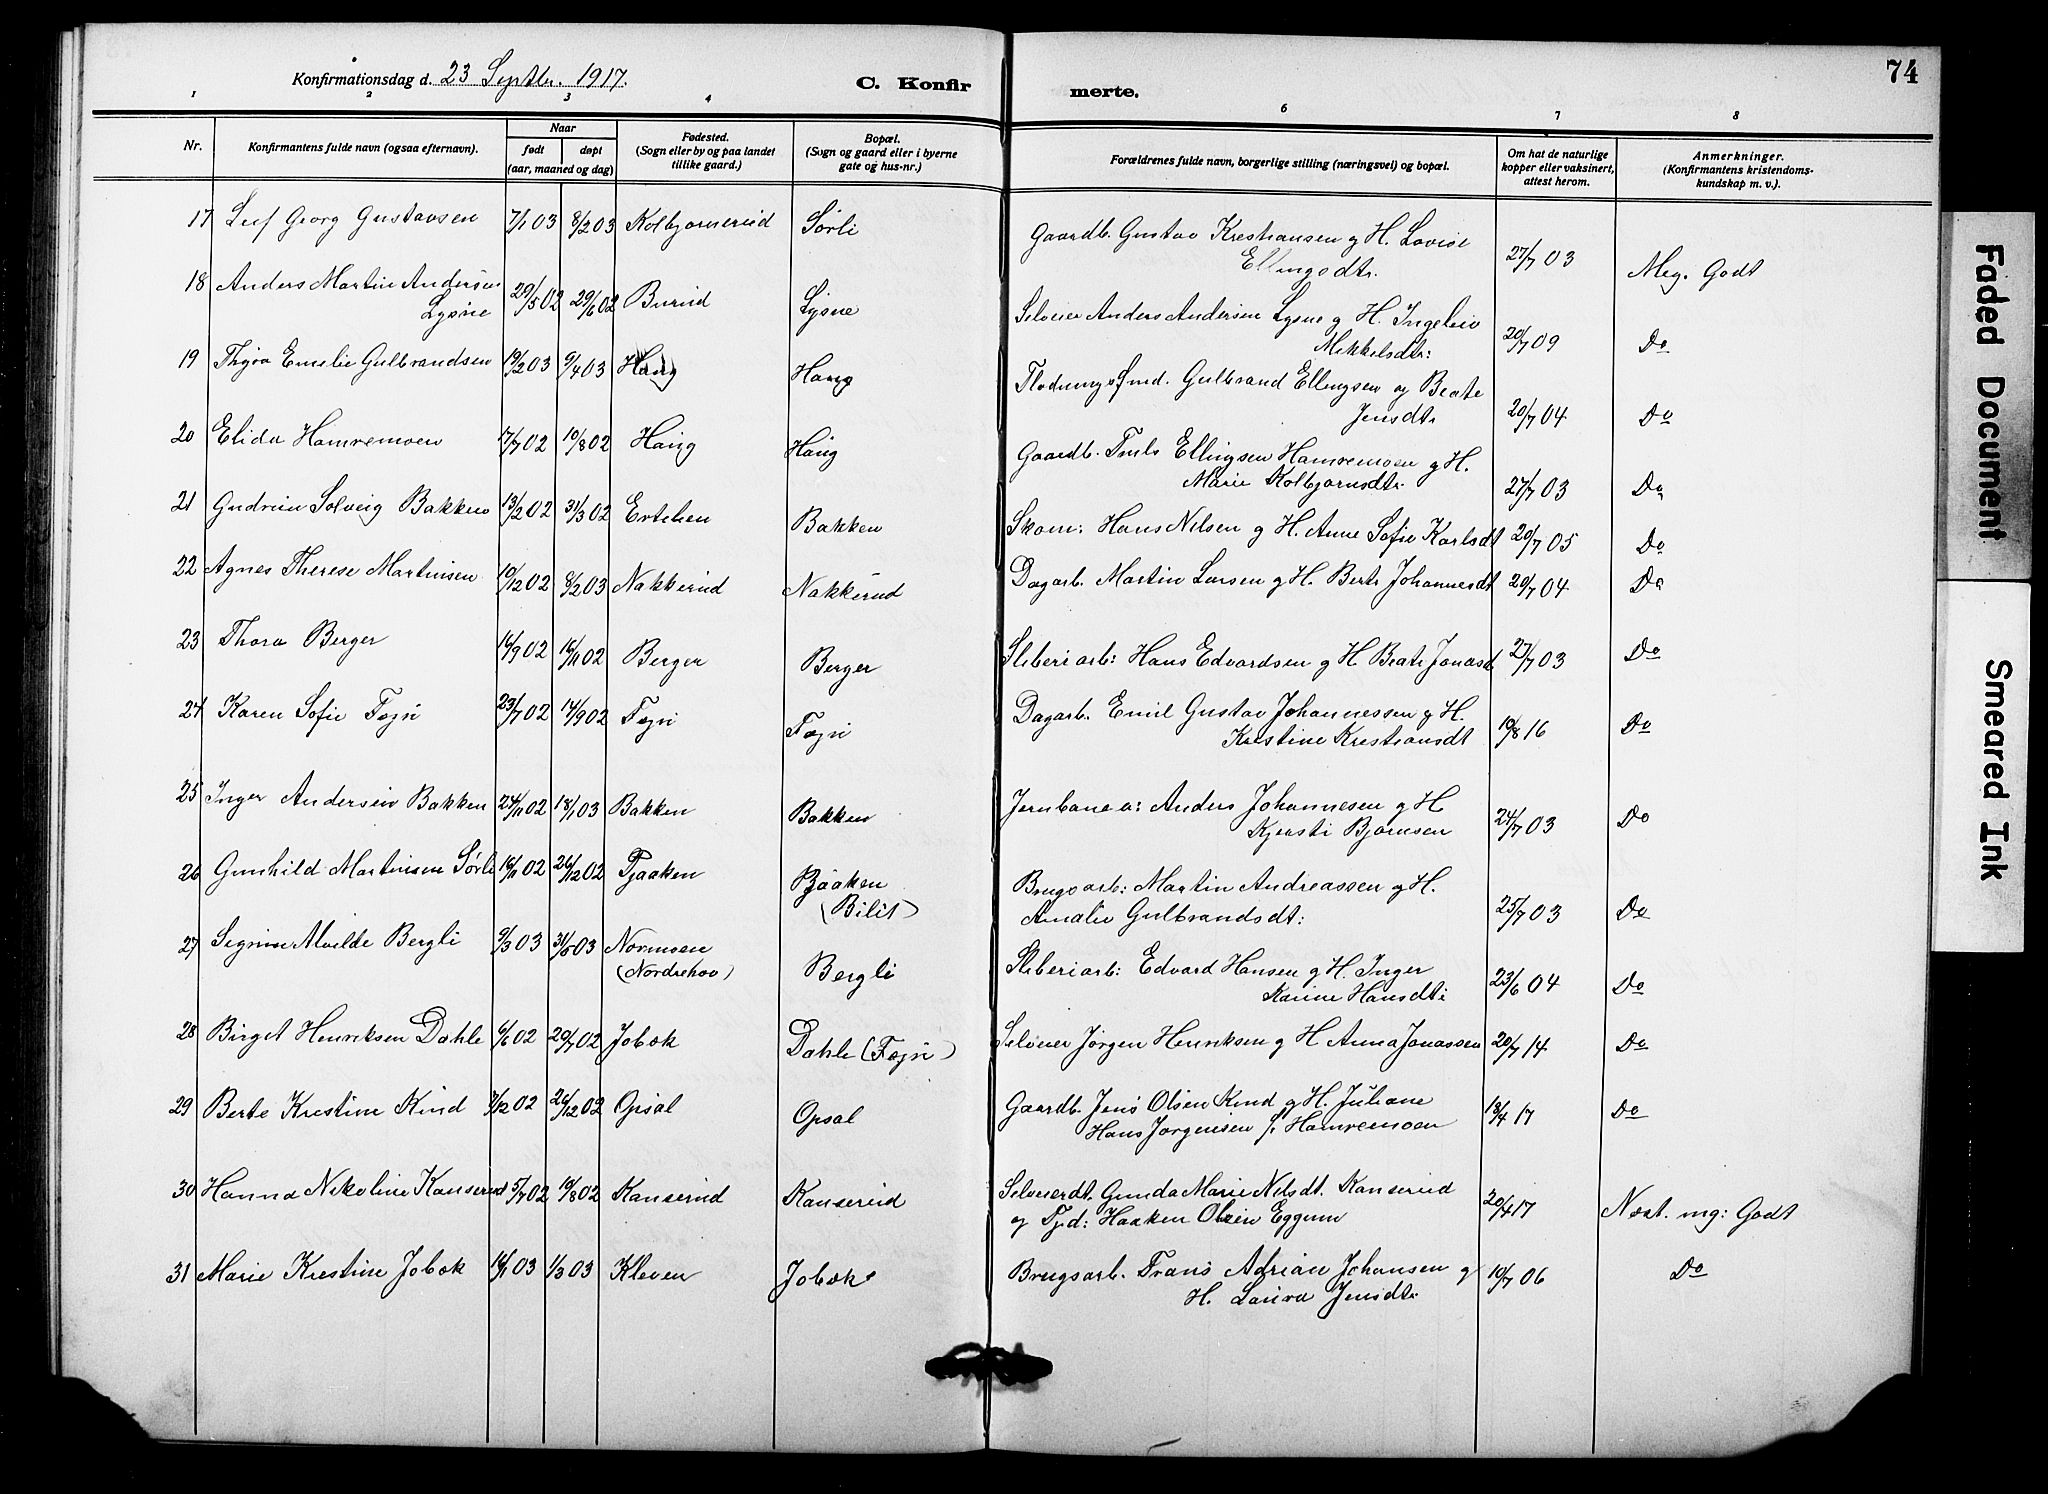 74
Konfirmationsdag d. 23 Septbr. 1917.
C. Konfirmerte.
1 2 3 4 6 7 8
Nr.
Konfirmantens fulde navn (ogsaa efternavn).
Naar
født
døpt
(aar, maaned og dag)
Fødested.
(Sogn eller by og paa landet
tillike gaard.)
Bopæl.
(Sogn og gaard eller i byerne
gate og hus-nr.)
Forældrenes fulde navn, borgerlige stilling (næringsvei) og bopæl.
Om hat de naturlige
kopper eller vaksinert,
attest herom.
Anmerkninger.
(Konfirmantens kristendoms-
kundskap m. v.).
17 Leif Georg Gustavsen 7/1 03 8/2 03 Kolbjørnerud Sørli Gaardb. Gustav Kristiansen g H. Lovise
Ellingsdtr. 27/7 03 Meg. Godt
18 Anders Martin Andersen
Lysne 29/5 02 29/6 02 Burud Lysne Selveier Anders Andersen Lysne g H. Ingeleiv
Mikkelsdtr: 20/7 09 Do
19 Thyra Emilie Gulbrandsen 19/2 03 9/4 03 Haug Haug Gulbrand Ellingsen og Beate
Jensdtr 20/7 04 Do
20 Elida Hamremoen 17/7 02 10/8 02 Haug Haug Gaardb. Truls Ellingsen Hamremoen g H.
Marie Kolbjørnsdtr. 27/7 03 Do
21 Gudrun Solveig Bakken 13/2 02 31/3 02 Ertelien Bakken Skom: Hans Nilsen g H. Anne Sofie Karlsdt 20/7 05 Do
22 Agnes Therese Martinsen 10/12 02 8/2 03 Nakkerud Nakkerud Dagarb. Martin Larsen g H. Berte Johannesdt 20/7 04 Do
23 Thora Berger 16/9 02 16/11 02 Berger Berger Sliberiarb: Hans Edvardsen g H. Beate Jonasd 27/7 03 Do
24 Karen Sofie Fægri 23/7 02 14/9 02 Fægri Fægri Dagarb. Emil Gustav Johannessen g H.
Kristine Kristiansdt 10/8 16 Do
25 Inger Andersen Bakken 24/11 02 18/1 03 Bakken Bakken Jernbanea: Anders Johannesen g H
Kjersti Bjørnsen 24/7 03 Do
26 Gunhild Martinsen Sørli 16/11 02 26/12 02 Tjaaken Bjaaken
(Bilit) Brugsarb: Martin Andreassen g H.
Amalie Gulbrandsdt: 25/7 03 Do
27 Sigrun Alvilde Bergli 9/3 03 31/5 03 Normoen
(Nordrehov) Bergli Sliberiarb: Edvard Hansen g H. Inger
Karine Hansdt: 23/6 04 Do
28 Birgit Henriksen Dahle 6/6 02 20/7 02 Jobæk Dahle (Fægri) Selveier Jørgen Henriksen g H Anna Jonassen 20/7 14 Do
29 Berte Kristine Kind 7/12 02 26/12 02 Opsal Opsal Gaardb. Jens Olsen Kind g H. Juliane
Hans Jørgensen f. Hamremoen 18/4 17 Do
30 Hanna Nikoline Kanserud 5/7 02 10/8 02 Kanserud Kanserud Selveierdt. Gunda Marie Nilsdt. Kanserud
og Tjd: Haaken Olsen Eggum 20/4 17 Næst. mg: Godt
31 Marie Kristine Jobæk 14/1 03 1/3 03 Kleven Jobæk Brugsarb. Frans Adrian Johansen g
H. Laura Jensdtr 10/7 06 Do
Faded Document
Smeared Ink